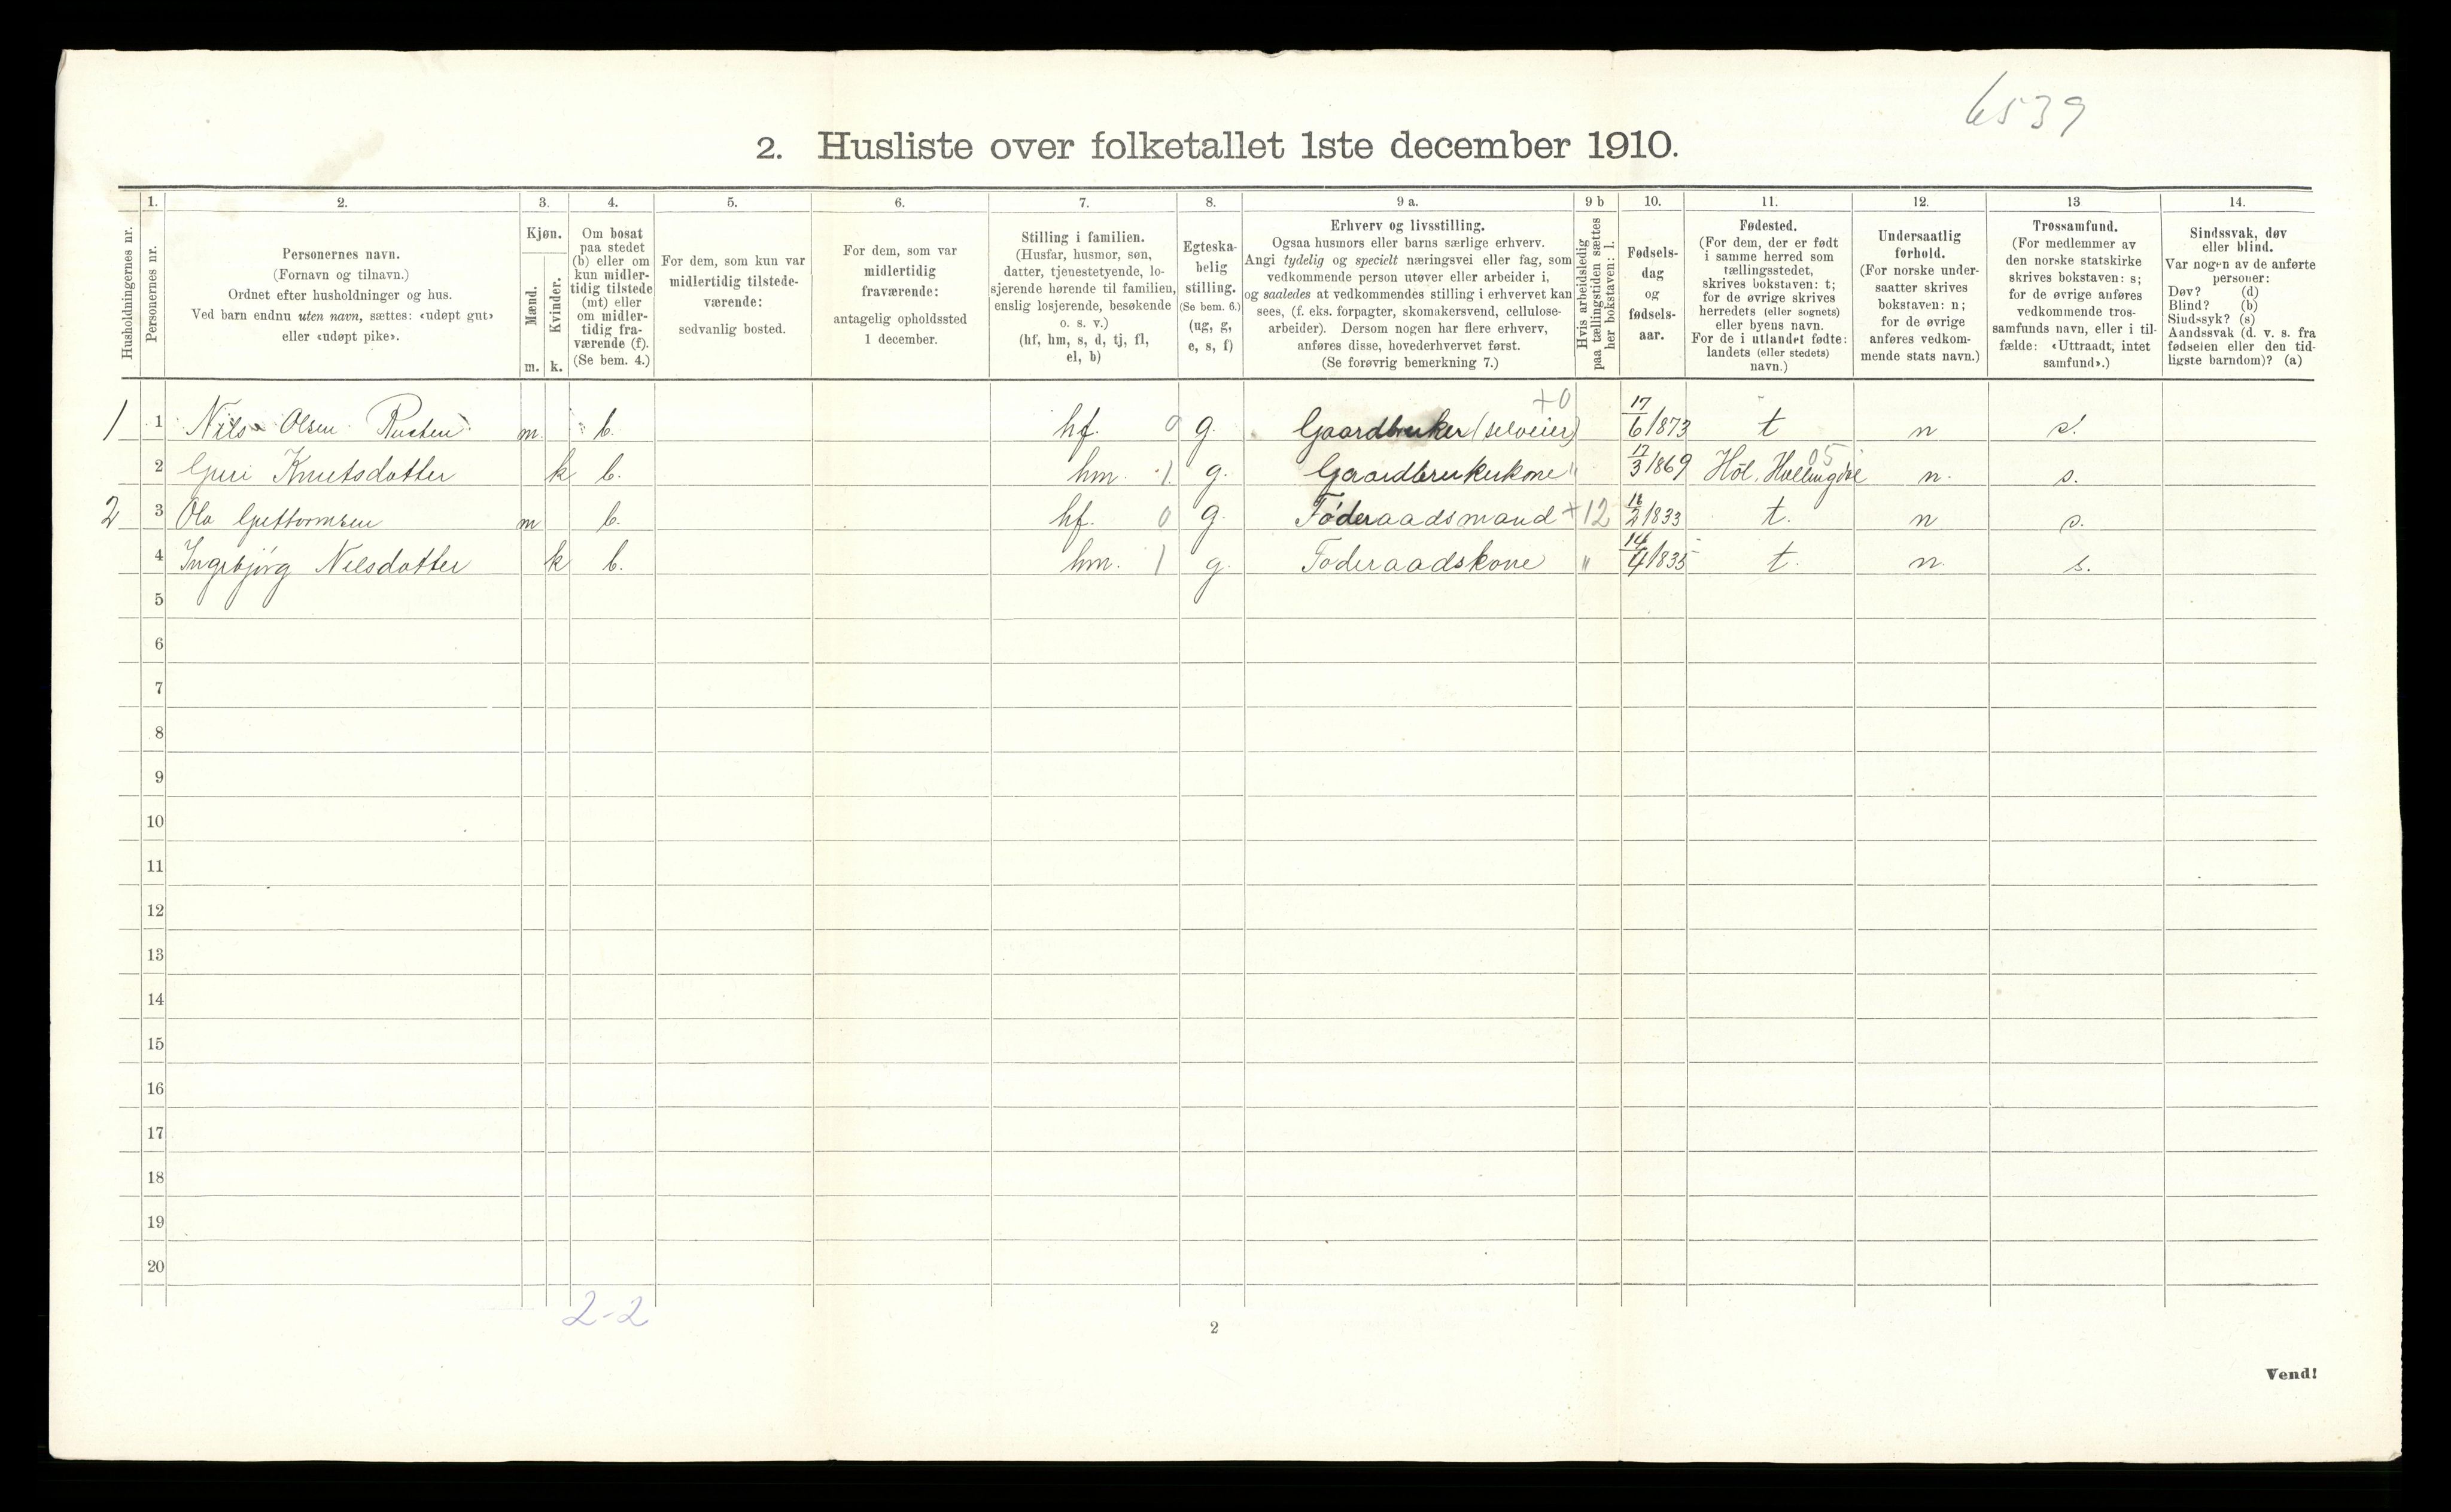 6539
2. Husliste over folketallet 1ste december 1910.
Husholdningernes nr.
1.
Personernes nr.
2.
Personernes navn.
(Fornavn og tilnavn.)
Ordnet efter husholdninger og hus.
Ved barn endnu uten navn, sættes: «udøpt gut»
eller «udøpt pike».
3.
Kjøn.
Mænd.
Kvinder.
m. k.
4.
Om bosat
paa stedet
(b) eller om
kun midler-
tidig tilstede
(mt) eller
om midler-
tidig fra-
værende (f).
(Se bem. 4.)
5.
For dem, som kun var
midlertidig tilstede-
værende:
sedvanlig bosted.
6.
For dem, som var
midlertidig
fraværende:
antagelig opholdssted
1 december.
7.
Stilling i familien.
(Husfar, husmor, søn,
datter, tjenestetyende, lo-
sjerende hørende til familien,
enslig losjerende, besøkende
o. s. v.)
(hf, hm, s, d, tj, fl,
el, b)
8.
Egteska-
belig
stilling.
(Se bem. 6.)
(ug, g,
e, s, f)
9 a.
Erhverv og livsstilling.
Ogsaa husmors eller barns særlige erhverv.
Angi tydelig og specielt næringsvei eller fag, som
vedkommende person utøver eller arbeider i,
og saaledes at vedkommendes stilling i erhvervet kan
sees, (f. eks. forpagter, skomakersvend, cellulose-
arbeider). Dersom nogen har flere erhverv,
anføres disse, hovederhvervet først.
(Se forøvrig bemerkning 7.)
9 b
Hvis arbeidsledig
paa tællingstiden sættes
her bokstaven: l.
10.
Fødsels-
dag
og
fødsels-
aar.
11.
Fødested.
(For dem, der er født
i samme herred som
tællingsstedet,
skrives bokstaven: t;
for de øvrige skrives
herredets (eller sognets)
eller byens navn.
For de i utlandet fødte:
landets (eller stedets)
navn.)
12.
Undersaatlig
forhold.
(For norske under-
saatter skrives
bokstaven: n;
for de øvrige
anføres vedkom-
mende stats navn.)
13
Trossamfund.
(For medlemmer av
den norske statskirke
skrives bokstaven: s;
for de øvrige anføres
vedkommende tros-
samfunds navn, eller i til-
fælde: «Uttraadt, intet
samfund».)
14.
Sindssvak, døv
eller blind.
Var nogen av de anførte
personer:
Døv? (d)
Blind? (b)
Sindssyk? (s)
Aandssvak (d. v. s. fra
fødselen eller den tid-
ligste barndom)? (a)
+0
1 1 Nils Olsen Rusten m. b. hf. 0 g. Gaardbruker (selveier) 17/6 1873 t n s.
05
2 Guri Knutsdotter k b. hm. 1. g. Gaardbrukerkone " 17/3 1869 Hol, Hallingdal n. s.
2 3 Ola Guttormsen m b. hf. 0 g. Føderaadsmand +12 18/2 1833 t. n s.
4 Ingebjørg Nilsdotter k b. hm. 1 g. Føderaadskone " 14/4 1835 t. n. s.
5
6
7
8
9
10
11
12
13
14
15
16
17
18
19
20
2-2
2
Vend!